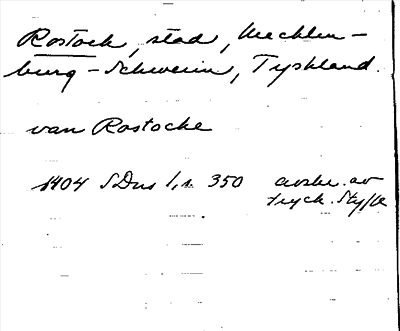 Rostock, stad, Mecklen-
burg-Schwerin, Tyskland.
van Rostocke
1404 SDns 1, s. 350 avskr. av
tryck. Styffe